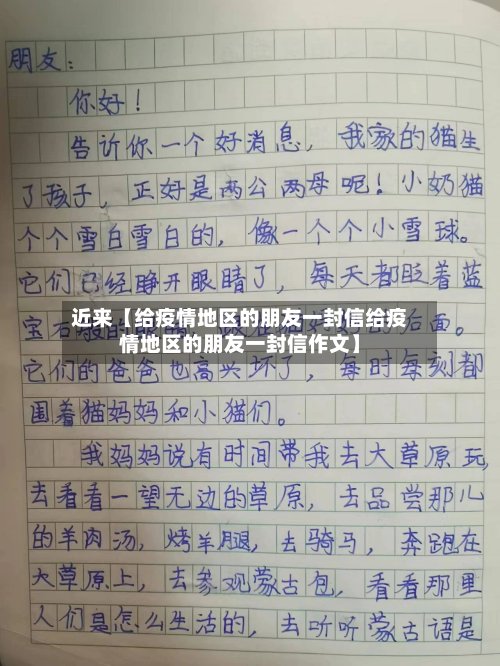 朋友：
你好！
告诉你一个好消息，我家的猫生
了孩子，正好是两公两母呢！小奶猫
个个雪白雪白的，像一个个小雪球。
它们已经睁开眼睛了，每天都眨着蓝
宝石
后面。
近来【给疫情地区的朋友一封信给疫
情地区的朋友一封信作文】
它们的爸爸也高兴坏了，每时每刻都
围着猫妈妈和小猫们。
我妈妈说有时间带我去大草原玩，
去看看一望无边的草原，去品尝那儿
的羊肉汤，烤羊腿，去骑马，奔跑在
大草原上，去参观蒙古包，看看那里
人们是怎么生活的，去听听蒙古语是